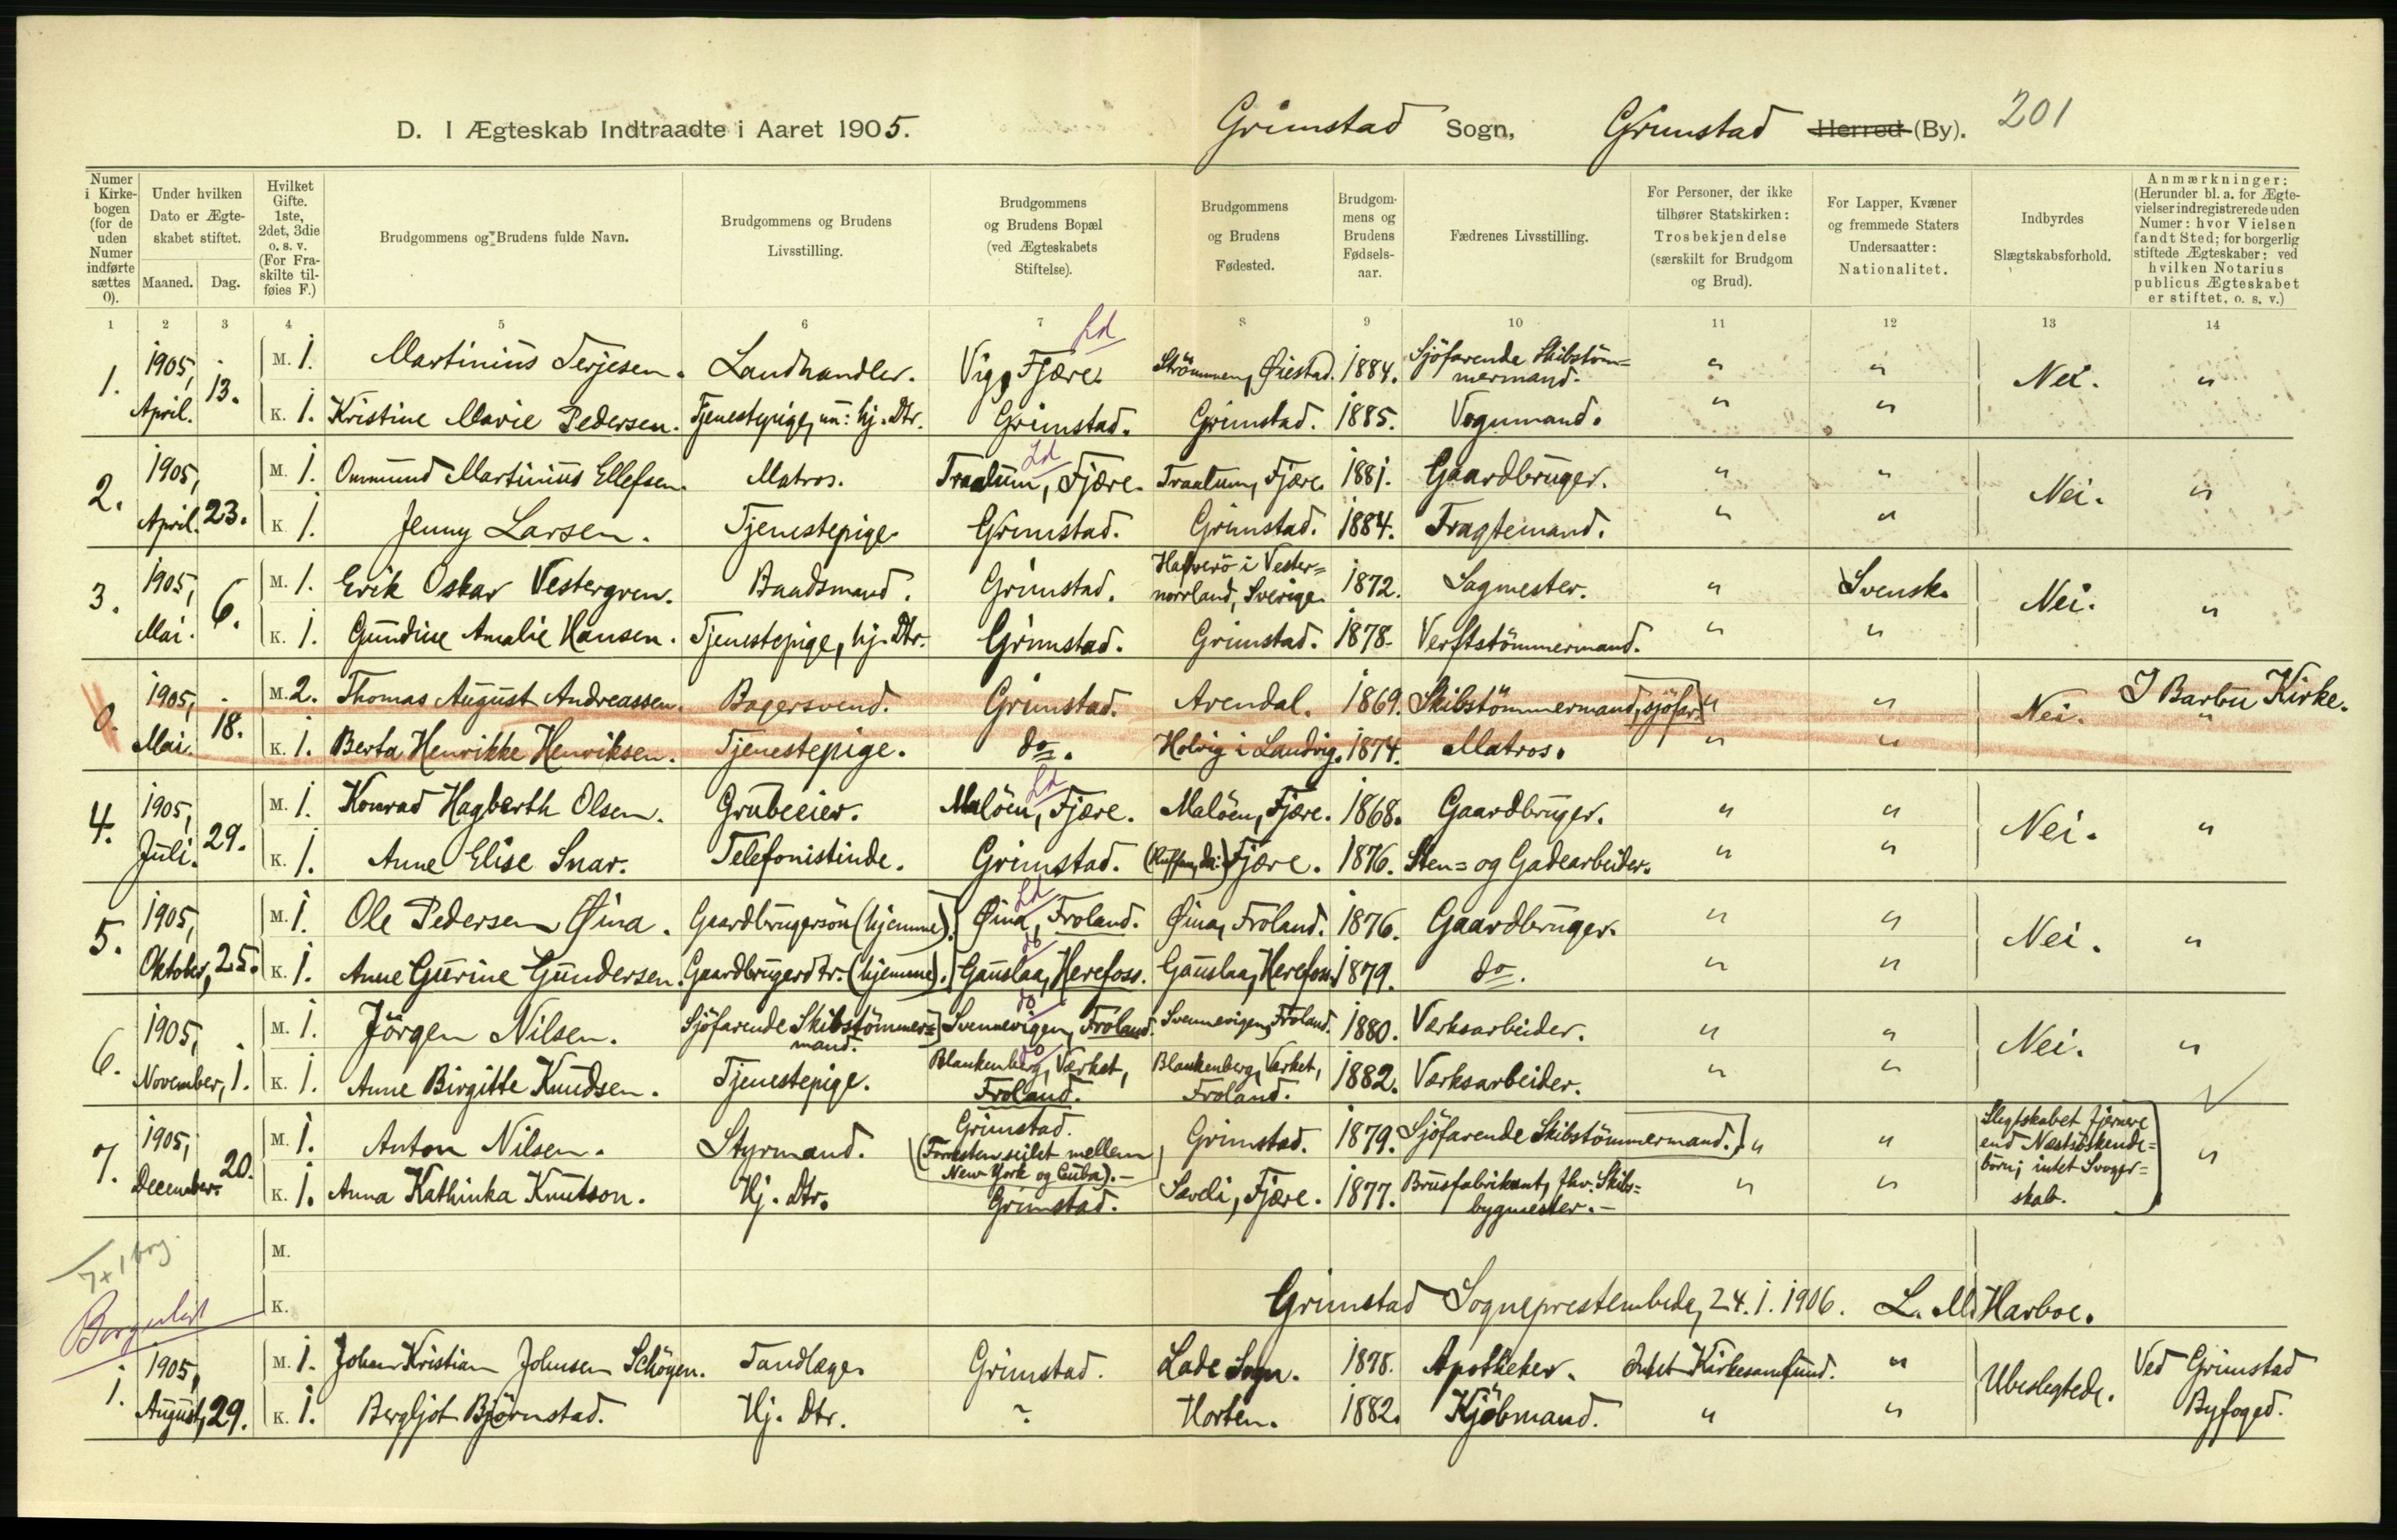 D. I Ægteskab Indtraadte i Aaret 1905. Grimstad Sogn, Grimstad Herred (By). 201
Numer i Kirkebogen (for de uden Numer indførte sættes 0).
Under hvilken Dato er Ægteskabet stiftet.
Maaned. Dag.
Hvilket Gifte. 1ste, 2det, 3die o. s. v. (For Fraskilte tilføies F.)
Brudgommens og Brudens fulde Navn.
Brudgommens og Brudens Livsstilling.
Brudgommens og Brudens Bopæl (ved Ægteskabets Stiftelse).
Brudgommens og Brudens Fødested.
Brudgommens og Brudens Fødselsaar.
Fædrenes Livsstilling.
For Personer, der ikke tilhører Statskirken: Trosbekjendelse (særskilt for Brudgom og Brud).
For Lapper, Kvæner og fremmede Staters Undersaatter: Nationalitet.
Indbyrdes Slægtskabsforhold.
Anmærkninger: (Herunder bl. a. for Ægtevielser indregistrerede uden Numer: hvor Vielsen fandt Sted; for borgerlig stiftede Ægteskaber: ved hvilken Notarius publicus Ægteskabet er stiftet, o. s. v.)
1 2 3 4 5 6 7 8 9 10 11 12 13 14
Ld
1. 1905, April. 13. M. 1. Martinius Terjesen. Landhandler. Vig, Fjære. Strömmen, Øiestad. 1884. Sjöfarende Skibstömmermand. " " Nei. "
K. 1. Kristine Marie Pedersen. Tjenestepige, nu: hj. Dtr. Grimstad. Grimstad. 1885. Vognmand. " "
Ld
2. 1905, April. 23. M. 1. Ommund Martinius Ellefsen. Matros. Traalum, Fjære. Traalum, Fjære. 1881. Gaardbruger. " " Nei. "
K 1. Jenny Larsen. Tjenestepige. Grimstad. Grimstad. 1884. Fragtemand. " "
3. 1905, Mai. 6. M. 1. Erik Oskar Vestergren. Baadsmand. Grimstad. Haverö i Vesternorrland, Sverige. 1872. Sagmester. " Svensk. Nei. "
K. 1. Gundine Amalie Hansen. Tjenestepige, hj. Dtr. Grimstad. Grimstad. 1878. Verftstömmermand. " "
0. 1905, Mai. 18. M. 2. Thomas August Andreassen. Bagersvend. Grimstad. Arendal. 1869. Skibstömmermand, sjöfar. " " Nei. I Barbu Kirke. "
K. 1. Berta Henrikke Henriksen. Tjenestepige. do. Holvig i Landvig. 1874. Matros. " "
Ld
4. 1905, Juli. 29. M. 1. Konrad Hagbarth Olsen. Grubeeier. Malöen, Fjære. Malöen, Fjære. 1868. Gaardbruger. " " Nei. "
K. 1. Anne Elise Snar. Telefonistinde. Grimstad. Fjære. 1876. Sten= og Gadearbeider. " "
Ld
5. 1905, Oktober, 25. M. 1. Ole Pedersen Øina. Gaardbrugersön (hjemme). Øina, Froland. Øina, Froland. 1876. Gaardbruger. " " Nei. "
do
K. 1. Anne Gurine Gundersen. Gaardbrugerdtr. (hjemme). Gauslaa, Herefoss. Gauslaa, Herefoss. 1879. do. " "
do
6. 1905, November, 1. M. 1. Jörgen Nilsen. Sjöfarende Skibstömmermand. Svennevigen, Froland. Svennevigen, Froland. 1880. Værksarbeider. " " Nei. "
do
K. 1. Anne Birgitte Knudsen. Tjenestepige. Blankenberg, Værket, Froland. Blankenberg, Værket, Froland. 1882. Værksarbeider. " "
7. 1905, December. 20. M. 1. Anton Nilsen. Styrmand. Grimstad. (Forresten seilet mellem New York og Cuba).— Grimstad. 1879. Sjöfarende Skibstömmermand. " " Slegtskabet fjernere end Næstsöskendebörn; intet Svogerskab. "
K. 1. Anna Kathinka Knutson. Hj. Dtr. Grimstad. Saveli, Fjære. 1877. Brusfabrikant, fhv. Skibsbygmester.— " "
7+1 borg.
M.
K.
Grimstad Sogneprestembede, 24.1.1906. L. M. Harboe.
Borgerligt
1. 1905, August, 29. M. 1. Johan Kristian Johnsen Schöyen. Tandlæge. Grimstad. Lade Sogn. 1878. Apotheker. Intet Kirkesamfund. " Ubeslegtede. Ved Grimstad Byfoged.
K. 1. Bergljot Björnstad. Hj. Dtr. ~ Horten. 1882. Kjöbmand. " "